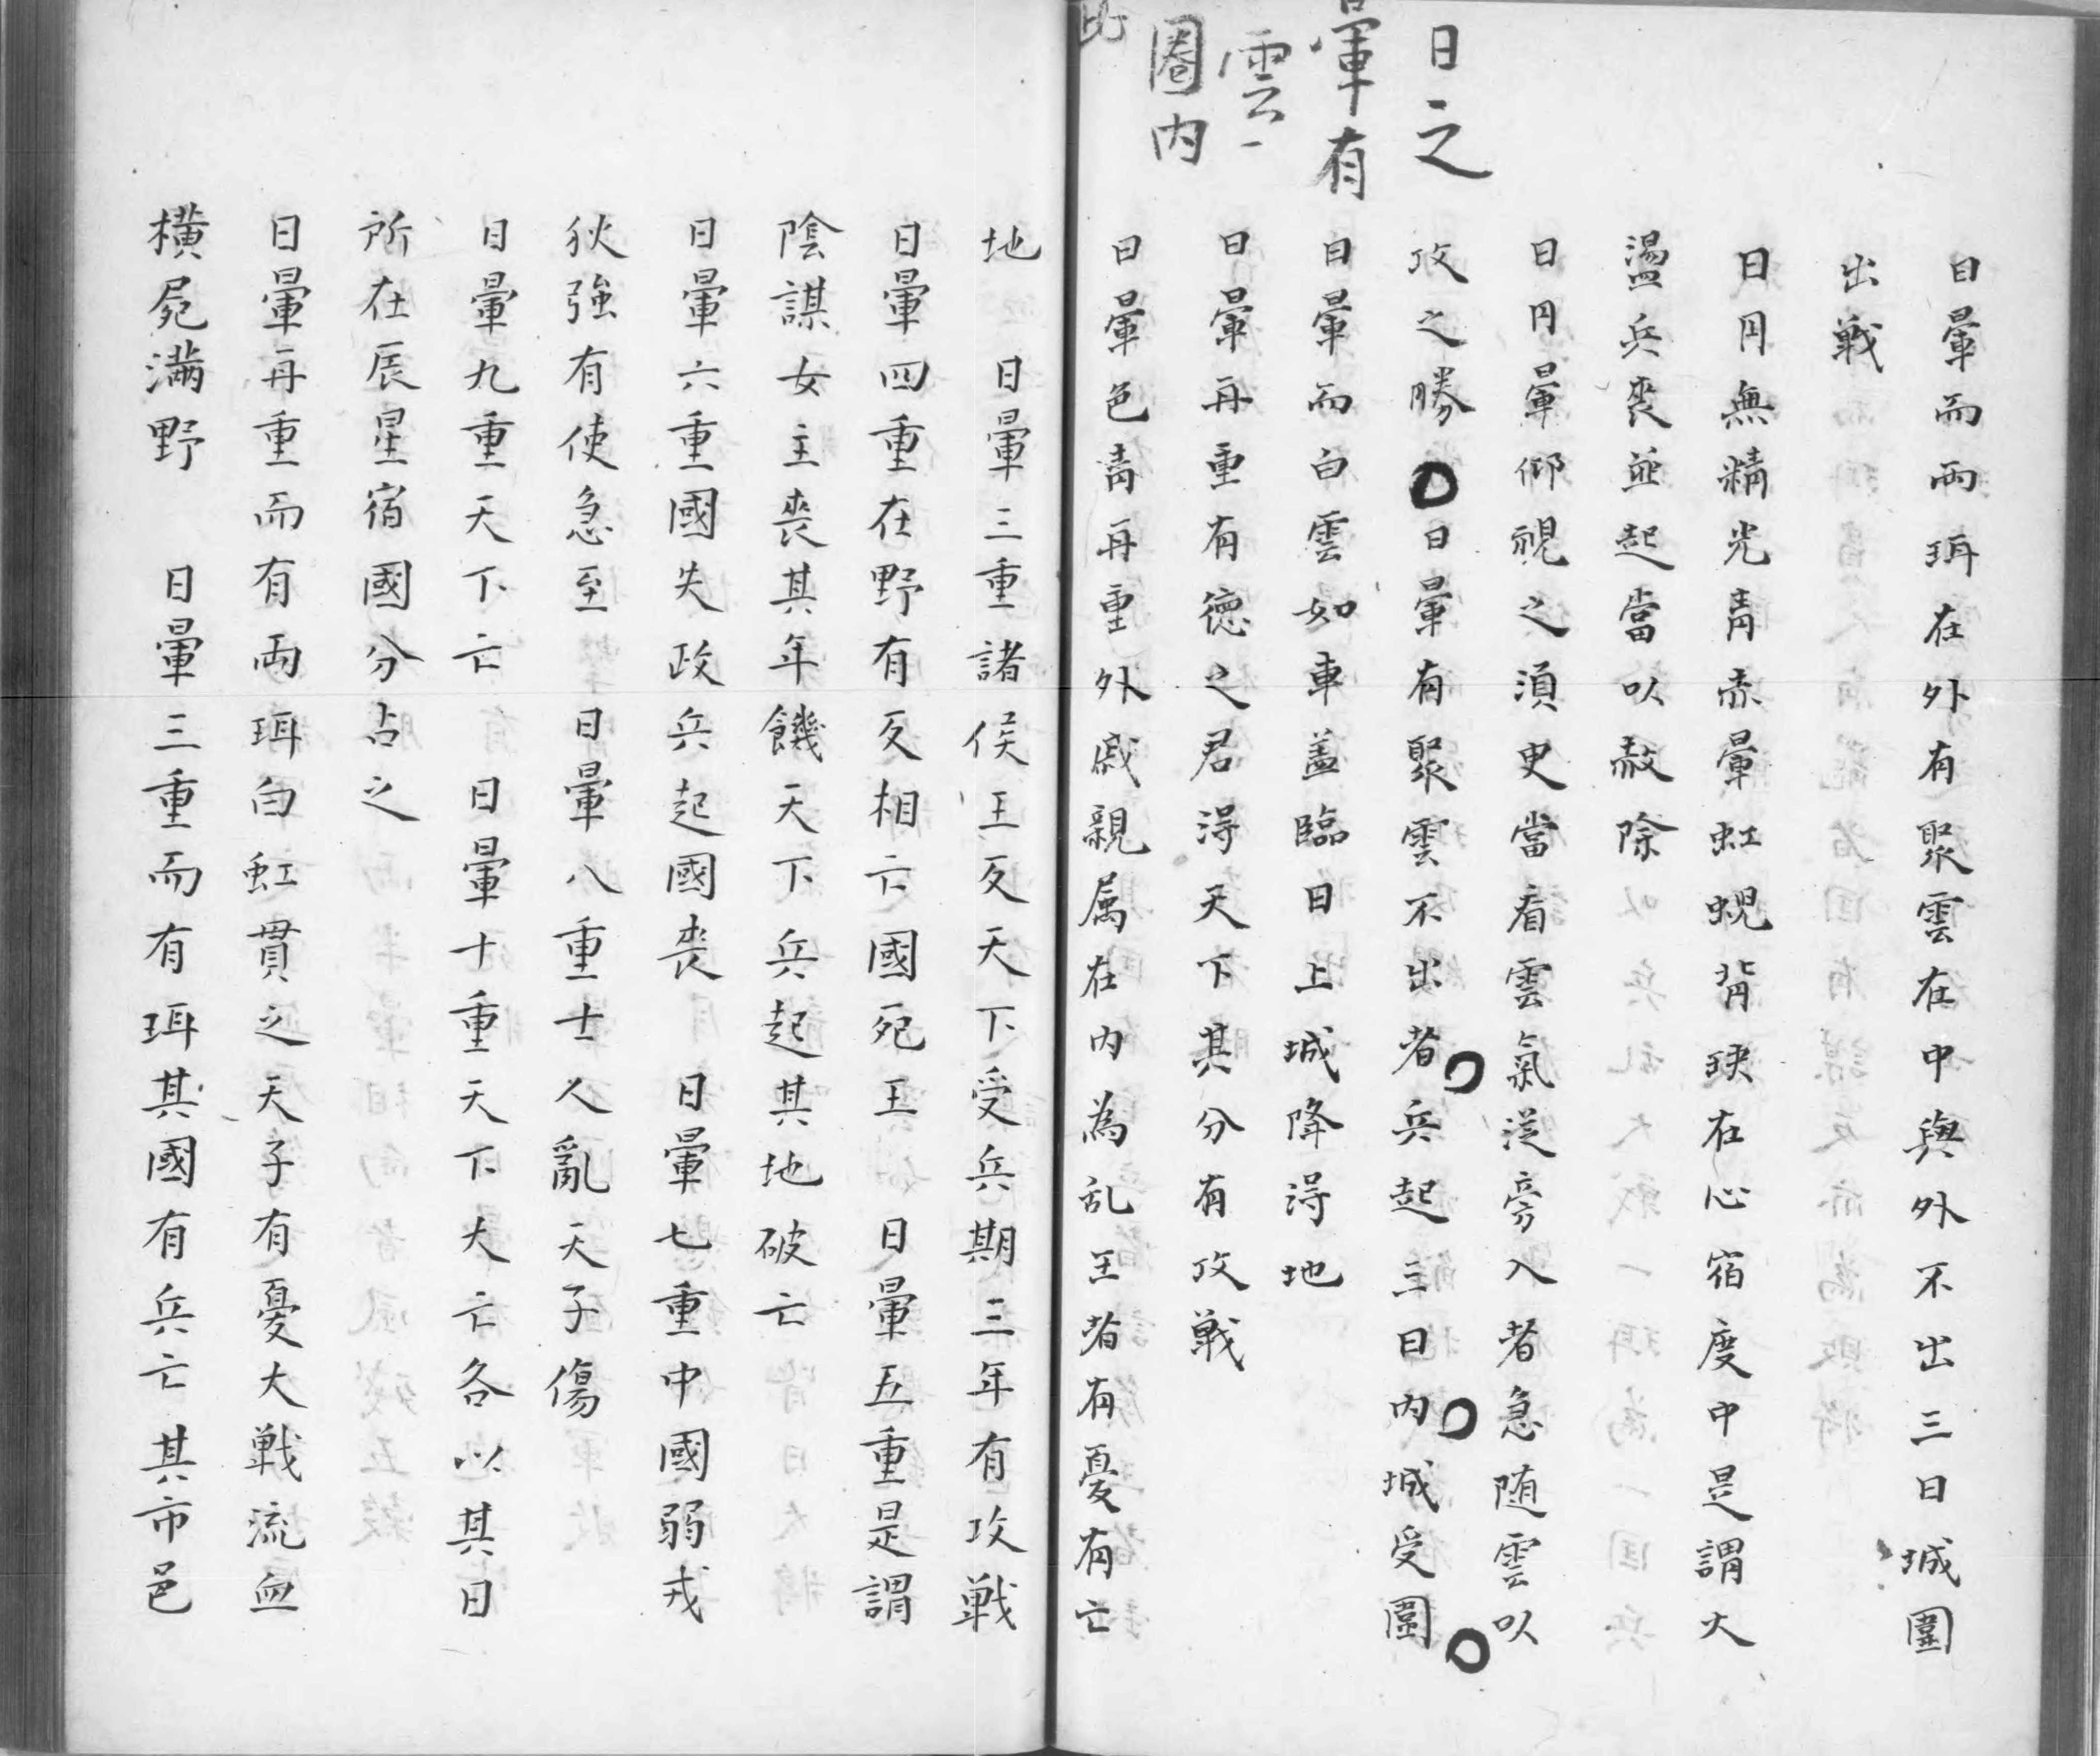 日之
暈有
雲一
圈内
此
日暈而兩珥在外有聚雲在中與外不出三日城圍
出戦
日月無精光青赤暈虹蜺背玦在心宿度中是謂大
盪兵喪並起當以赦除
日月暈仰視之須臾當看雲氣從旁入者急随雲以
攻之勝日暈有聚雲不出者兵起三日内城受圍
日暈而白雲如車盖臨日上城降得地
日暈再重有徳之君得天下其分有攻戦
日暈色青再重外戚親属在内為乱王者有憂有亡
地　日暈三重諸侯王反天下受兵期三年有攻戦
日暈四重在野有反相亡國死王　日暈五重是謂
陰謀女主喪其年饑天下兵起其地破亡
日暈六重國失政兵起國喪　日暈七重中國弱戎
狄強有使急至　日暈八重士人亂天子傷
日暈九重天下亡　日暈十重天下大亡各以其日
所在辰星宿國分占之
日暈再重而有両珥白虹貫之天子有憂大戦流血
横屍満野　日暈三重而有珥其國有兵亡其市邑